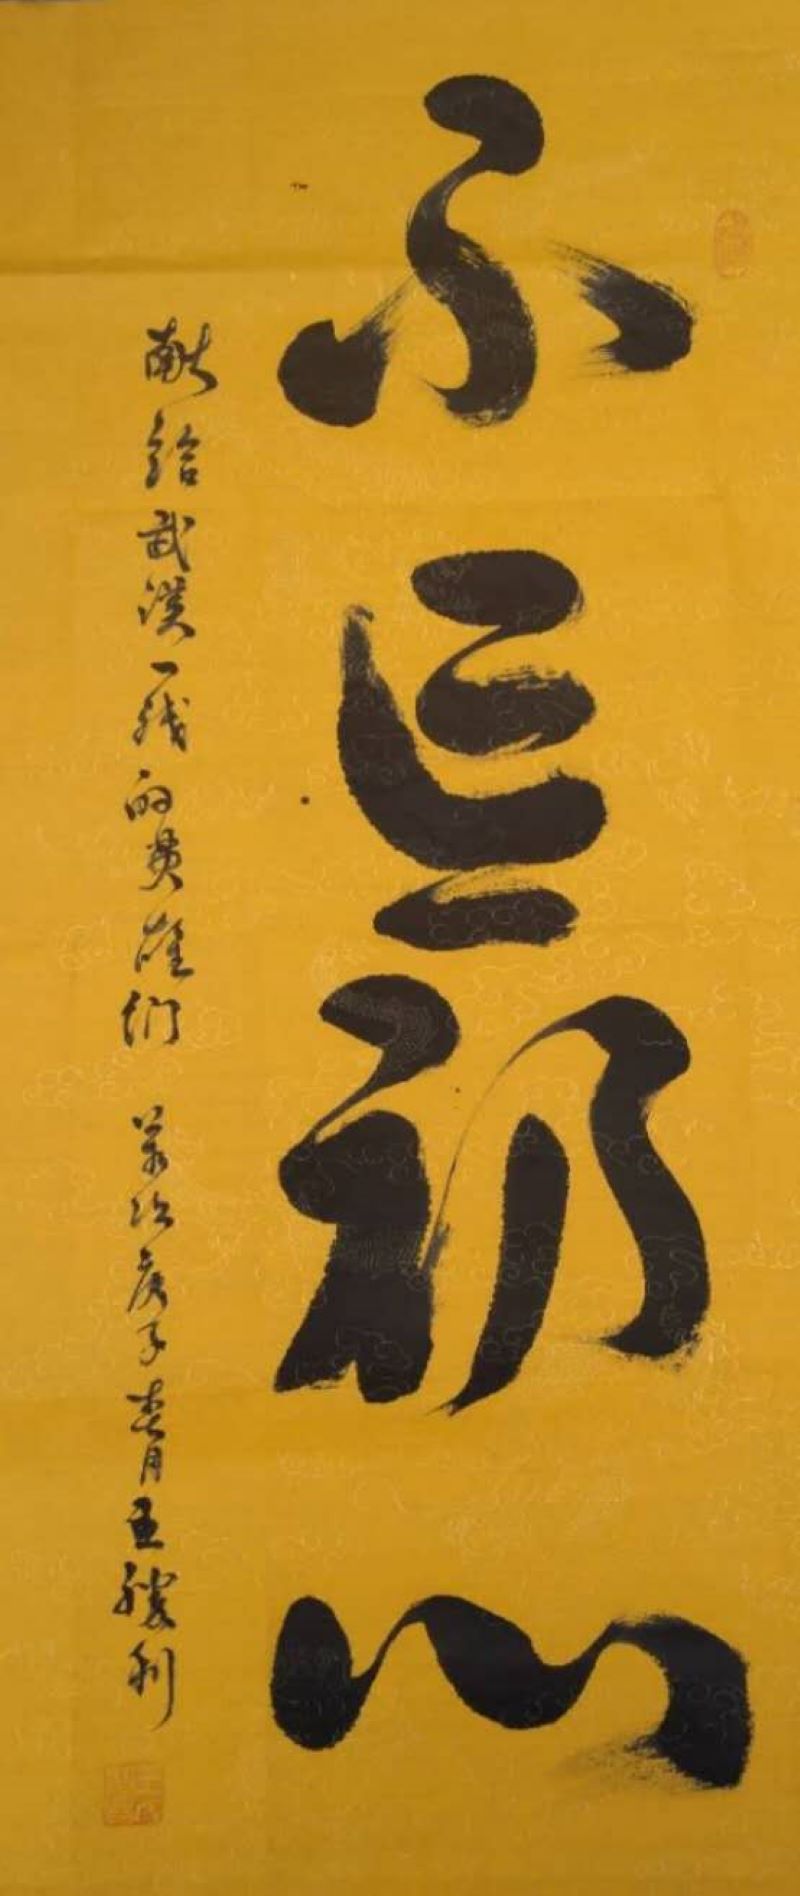 不忘初心
献给武汉一线的英雄们 岁次庚子青月王胜利